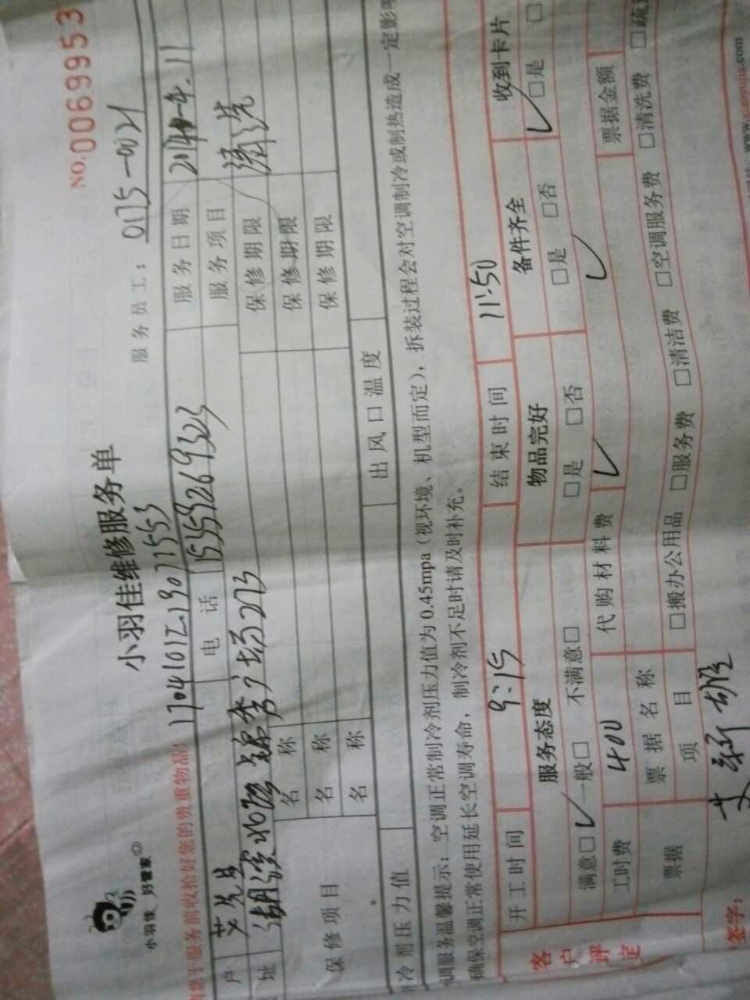 NO.0069953
小羽佳 好管家
小羽佳维修服务单
服务员工： 0175-0021
1704101219071553
服务前收拾好您的贵重物品
户 艾先生 电话 15359269323 服务日期
址 服务项目 清洗
保修项目 名称 保修期限
名称 保修期限
名称 保修期限
冷剂压力值 出风口温度
调服务温馨提示：空调正常制冷剂压力值为0.45mpa（视环境、机型而定），拆装过程会对空调制冷或制热造成一定影响
确保空调正常使用延长空调寿命，制冷剂不足时请及时补充。
开工时间 9:15 结束时间 11:50
客户评定
服务态度 物品完好 备件齐全 收到卡片
满意□✓ 一般□ 不满意□ □是 □否 □是 □否 □是 □
工时费 400 代购材料费 票据金额
票据 票据名称
项目 □搬办公用品 □服务费 □清洁费 □空调服务费 □清洗费 □疏
签字：